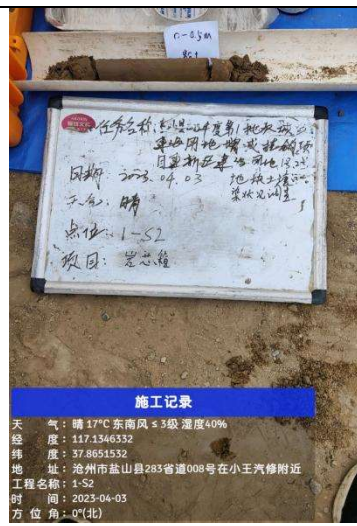 0-0.5m
任务名称:
建设用地增减挂钩项
目建新区建设用地
日期: 2023.04.03
地块土壤污
染状况调查
天气: 晴
点位: 1-S2
项目: 岩芯箱
施工记录
天 气:晴 17℃ 东南风 ≤ 3级 湿度40%
经 度:117.1346332
纬 度:37.8651532
地 址:沧州市盐山县283省道008号在小王汽修附近
工程名称:1-S2
时 间:2023-04-03
方 位 角:0°(北)